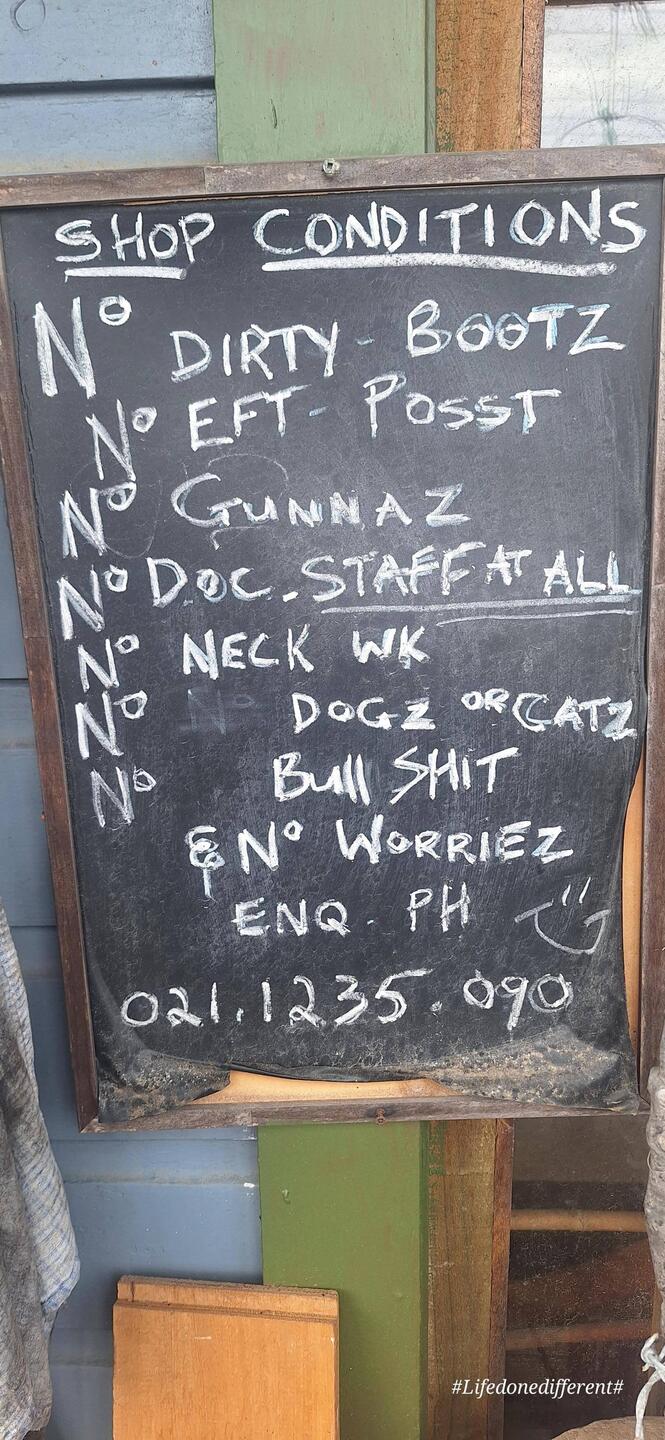 SHOP CONDITIONS
Nº DIRTY - BOOTZ
Nº EFT - POSST
Nº GUNNAZ
Nº DOC. STAFF AT ALL
Nº NECK WK
Nº Nº DOGZ OR CATZ
Nº Bull SHIT
& Nº WORRIEZ
ENQ - PH
021.1235.090
#Lifedonedifferent#